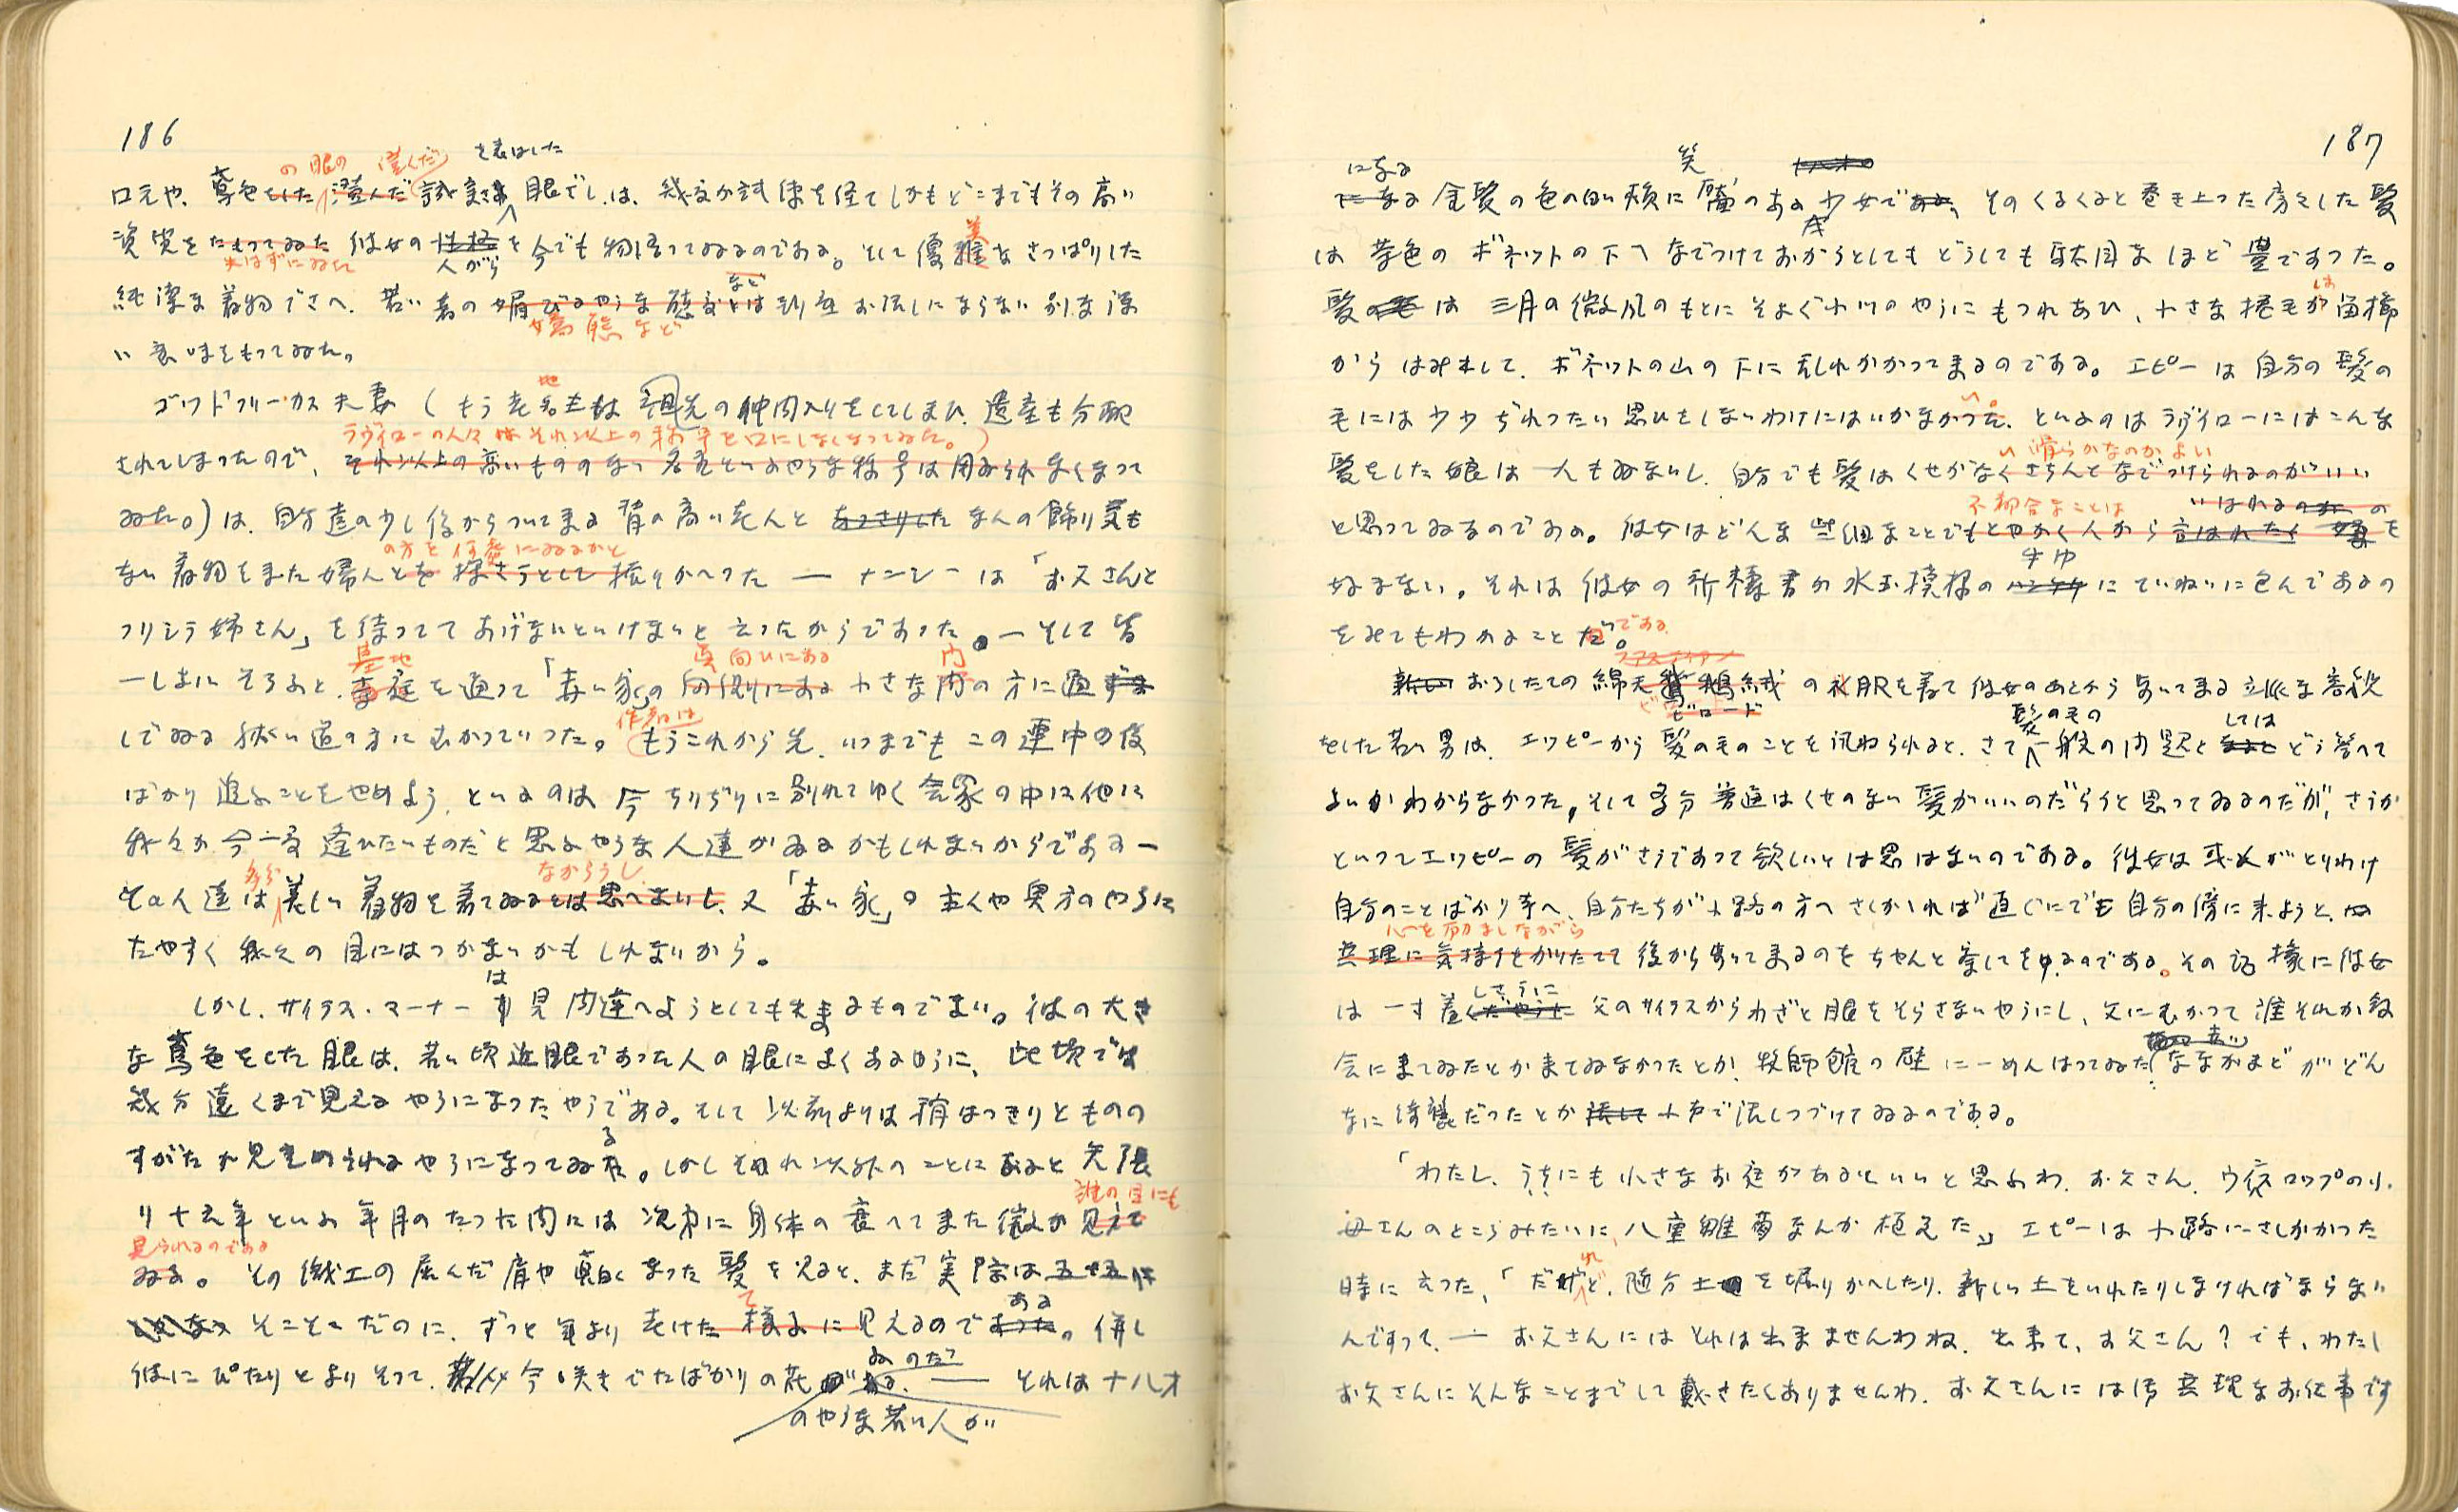 186
の眼の 澄んだ を表はした
口元や、鳶色をした澄んだ誠実さ 眼ざしは、幾多か試練を経てしかもどこまでもその高い
資質をたもつてゐた彼女の性格を今でも物語つてゐるのである。そして優雅なさつぱりした
失はずにゐた 人がら 美
純潔な着物でさへ、若い者の媚びるやうな態度とは到底お話しにならない別な深
など
嬌態など
い意味をもつてゐた。
ゴッドフリー・カス夫妻(もう老名主は祖先の仲間入りをしてしまひ、遺産も分配
地
ラヴイローの人々はそれ以上の称号を口にしなくなつてゐた。)
されてしまつたので、それ以上の高いもののない名主といふやうな称号は用ゐられなくなつて
ゐた。)は、自分達の少し後からついてまる背の高い老人と あつさりした なんの飾り気も
の方を何処にゐるかと
ない着物をきた婦人とを探さうとして振りかへつた — ナンシーは「お父さんと
プリシラ姉さん」を待つててあげないといけないと云つたからであつた。—そして皆
墓地 真向ひにある 門
一しよにそろふと、墓庭を通つて「赤い家」の向側にある小さな門の方に通ず
作者は
してゐる狭い道の方にむかつていつた。もうこれから先、いつまでもこの連中の後
ばかり追ふことをやめよう、といふのは今ちりぢりに別れてゆく会衆の中には他に
我々が今一度逢ひたいものだと思ふやうな人達がゐるかもしれないからである—
多分 なからうし
その人達は美しい着物を着てゐるとは思へまいし、又「赤い家」の主人や奥方のやうに
たやすく我々の目にはつかないかもしれないから。
は
しかし、サイラス・マーナー 見間違へようとしても出来るものでない。彼の大き
な鳶色をした眼は、若い頃近眼であつた人の眼によくあるやうに、此頃では
幾分遠くまで見えるやうになつたやうである。そして以前よりは稍はつきりとものの
る
すがたが見きめられるやうになつてゐた。しかしそれ以外のことになると矢張
誰の目にも
り十六年といふ年月のたつた間には次第に身体の衰へてきた徴が見えて
見られるのである
ゐる。その織工の屈んだ肩や真白くなつた髪を見ると、まだ実際は五十五に
て ある
そこそこだのに、ずつと年より老けた様子に見えるのであつた。併し
ゐのだ
彼にぴたりとよりそつて、今咲きでたばかりの花が — それは十八才
のやうな若い人が
187
になる 笑
になる 金髪の色の白い頬に靨のある少女である、そのくるくると巻き上つた房々した髪
は茶色のボネットの下へなでつけておかうとしてもどうしても駄目なほど豊であつた。
は
髪の毛は三月の微風のもとにそよぐ小川のやうにもつれあひ、小さな捲毛が留櫛
からはみ出して、ボネットの山の下に乱れかかつてまるのである。エピーは自分の髪の
い。
毛には少少ぢれつたい思ひをしないわけにはいかなかつた、といふのはラヴイローにはこんな
い滑らかなのがよい
髪をした娘は一人もゐないし、自分でも髪はくせがなくきちんとなでつけられるのがいい
不都合なことは いはれるのが の
と思つてゐるのである。彼女はどんな些細なことでもとやかく人から言はれたくを
好まない。それは彼女の祈祷書が水玉模様の に ていねいに包んであるの
をみてもわかることだ。である
ファスティアン
新しい おろしたての綿天鵞絨の衣服を着て彼女のあとから歩いてまる立派な容貌
ビロード
髪のもの しては
をした若い男は、エッピーから髪のもののことを訊ねられると、さて一般の問題となると どう答へて
よいかわからなかつた。そして多分普通はくせのない髪がいいのだらうと思つてゐるのだが、さうか
といつてエッピーの髪がさうであつて欲しいとは思はないのである。彼女は或人がとりわけ
自分のことばかり考へ、自分たちが小路の方へさしかかれば直ぐにでも自分の傍に来ようと、
心を励ましながら
無理に気持ちをかりたてて後から歩いてまるのをちやんと察してをゆるのである。その証拠に彼女
しさうに
は一寸羞 父のサイラスからわざと眼をそらさないやうにし、父にむかつて誰それが教
会に来てゐたとか来てゐなかつたとか、牧師館の壁に一めんはつてゐたななかまどがどん
なに綺麗だつたとか 小声で話しつづけてゐるのである。
「わたし、うちにも小さなお庭があるといいと思ふわ、お父さん、ウィンスロップの小
母さんのところみたいに、八重雛菊なんか植ゑた」エピーは小路にさしかかつた
れ
時に云つた、「だけど、随分土を堀りかへしたり、新しい土をいれたりしなければならない
んですつて、— お父さんにはそれは出来ませんわね、出来て、お父さん?でも、わたし
お父さんにそんなことまでして戴きたくありませんわ、お父さんには御無理なお仕事です